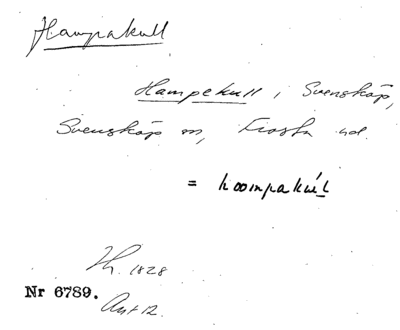 Hampakull
Hampekull i Svenskåp,
Svenskåp sn, Frosta hd.
= hoompakúl
Th. 1828
Nr 6789.
Avt 12.